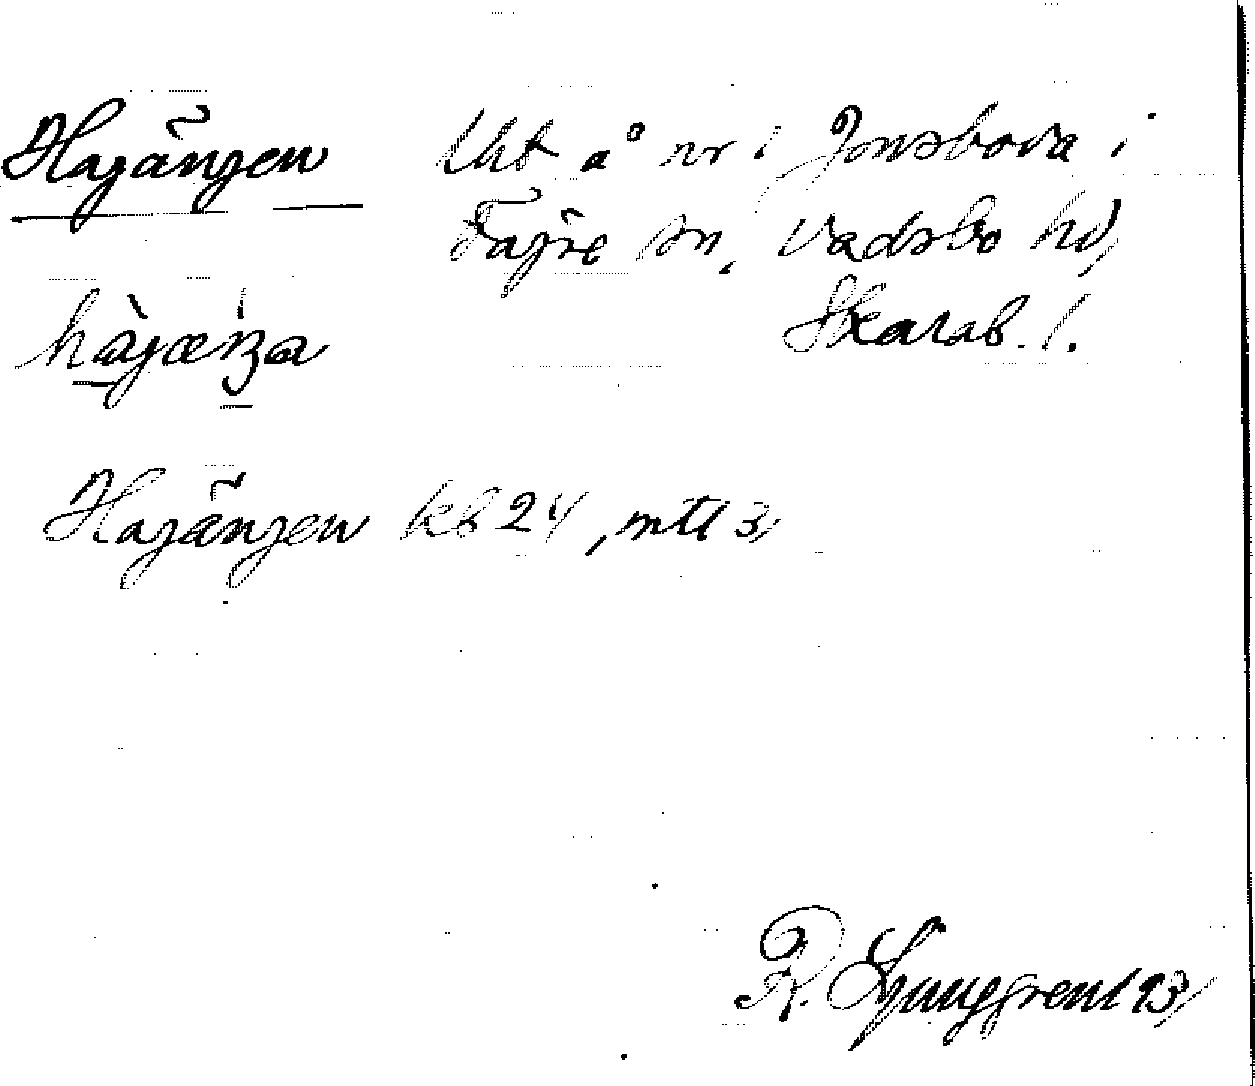 Hajängen Utt å nr 1 Jonsboda i
Fägre sn, Vadsbo hd,
Skarab. l.
hàjæŋa
Hajängen kb 24, mtl 3,
R. Ljunggren 1 23,